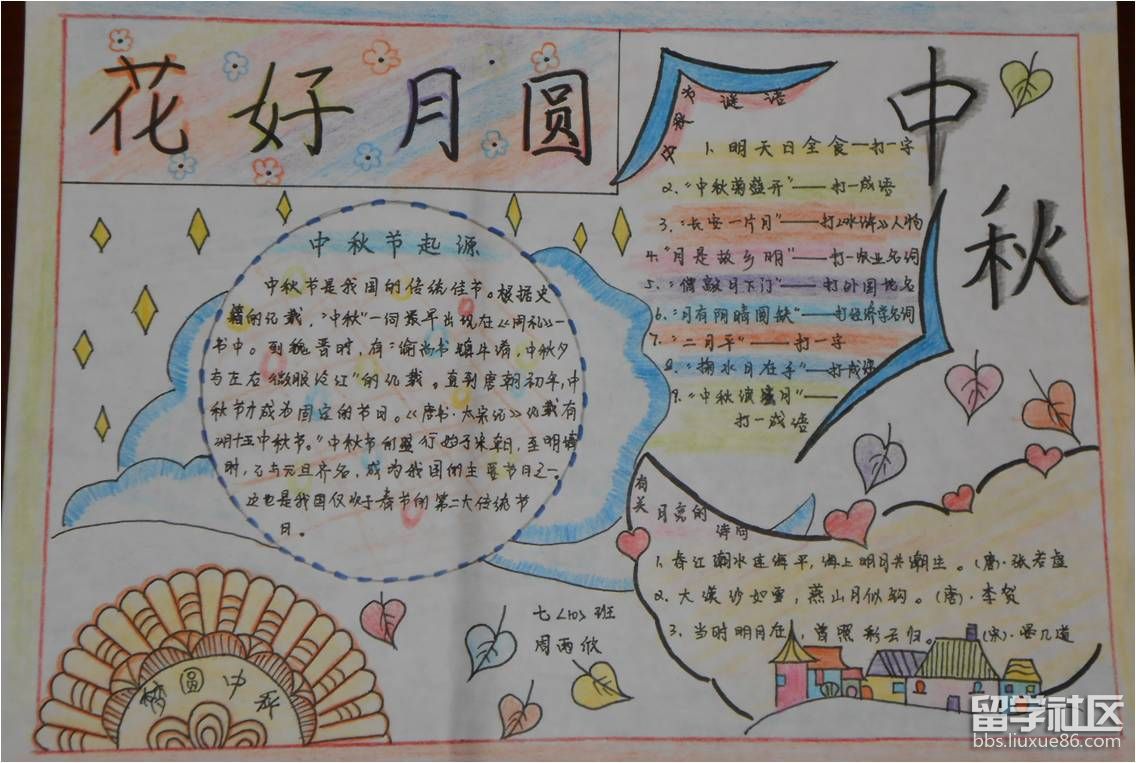 花好月圆
中秋
中秋节起源
中秋节是我国的传统佳节。根据史
籍的记载，"中秋"一词最早出现在《周礼》一
书中。到魏晋时，有"谕尚书镇牛渚，中秋夕
与左右微服泛江"的记载。直到唐朝初年，中
秋节才成为固定的节日。《唐书·太宗记》记载有
"八月十五中秋节。"中秋节的盛行始于宋朝，至明清
时，已与元旦齐名，成为我国的主要节日之一。
这也是我国仅次于春节的第二大传统节
日。
中秋节谜语
1、明天日全食—打一字
2、"中秋菊盛开"——打一成语
3、"长安一片月"——打《水浒》人物
4."月是故乡明"——打一农业名词
5、"僧敲月下门"——打外国地名
6、"月有阴晴圆缺"——打经济学名词
7、"二月平"——打一字
8、"掬水月在手"——打成语
9、"中秋度蜜月"——
打一成语
有关月亮的
诗句
1、春江潮水连海平，海上明月共潮生。(唐)·张若虚
2、大漠沙如雪，燕山月似钩。(唐)·李贺
3、当时明月在，曾照彩云归。(宋)·晏几道
七<10>班
周雨欣
梦圆中秋
留学社区
bbs.liuxue86.com